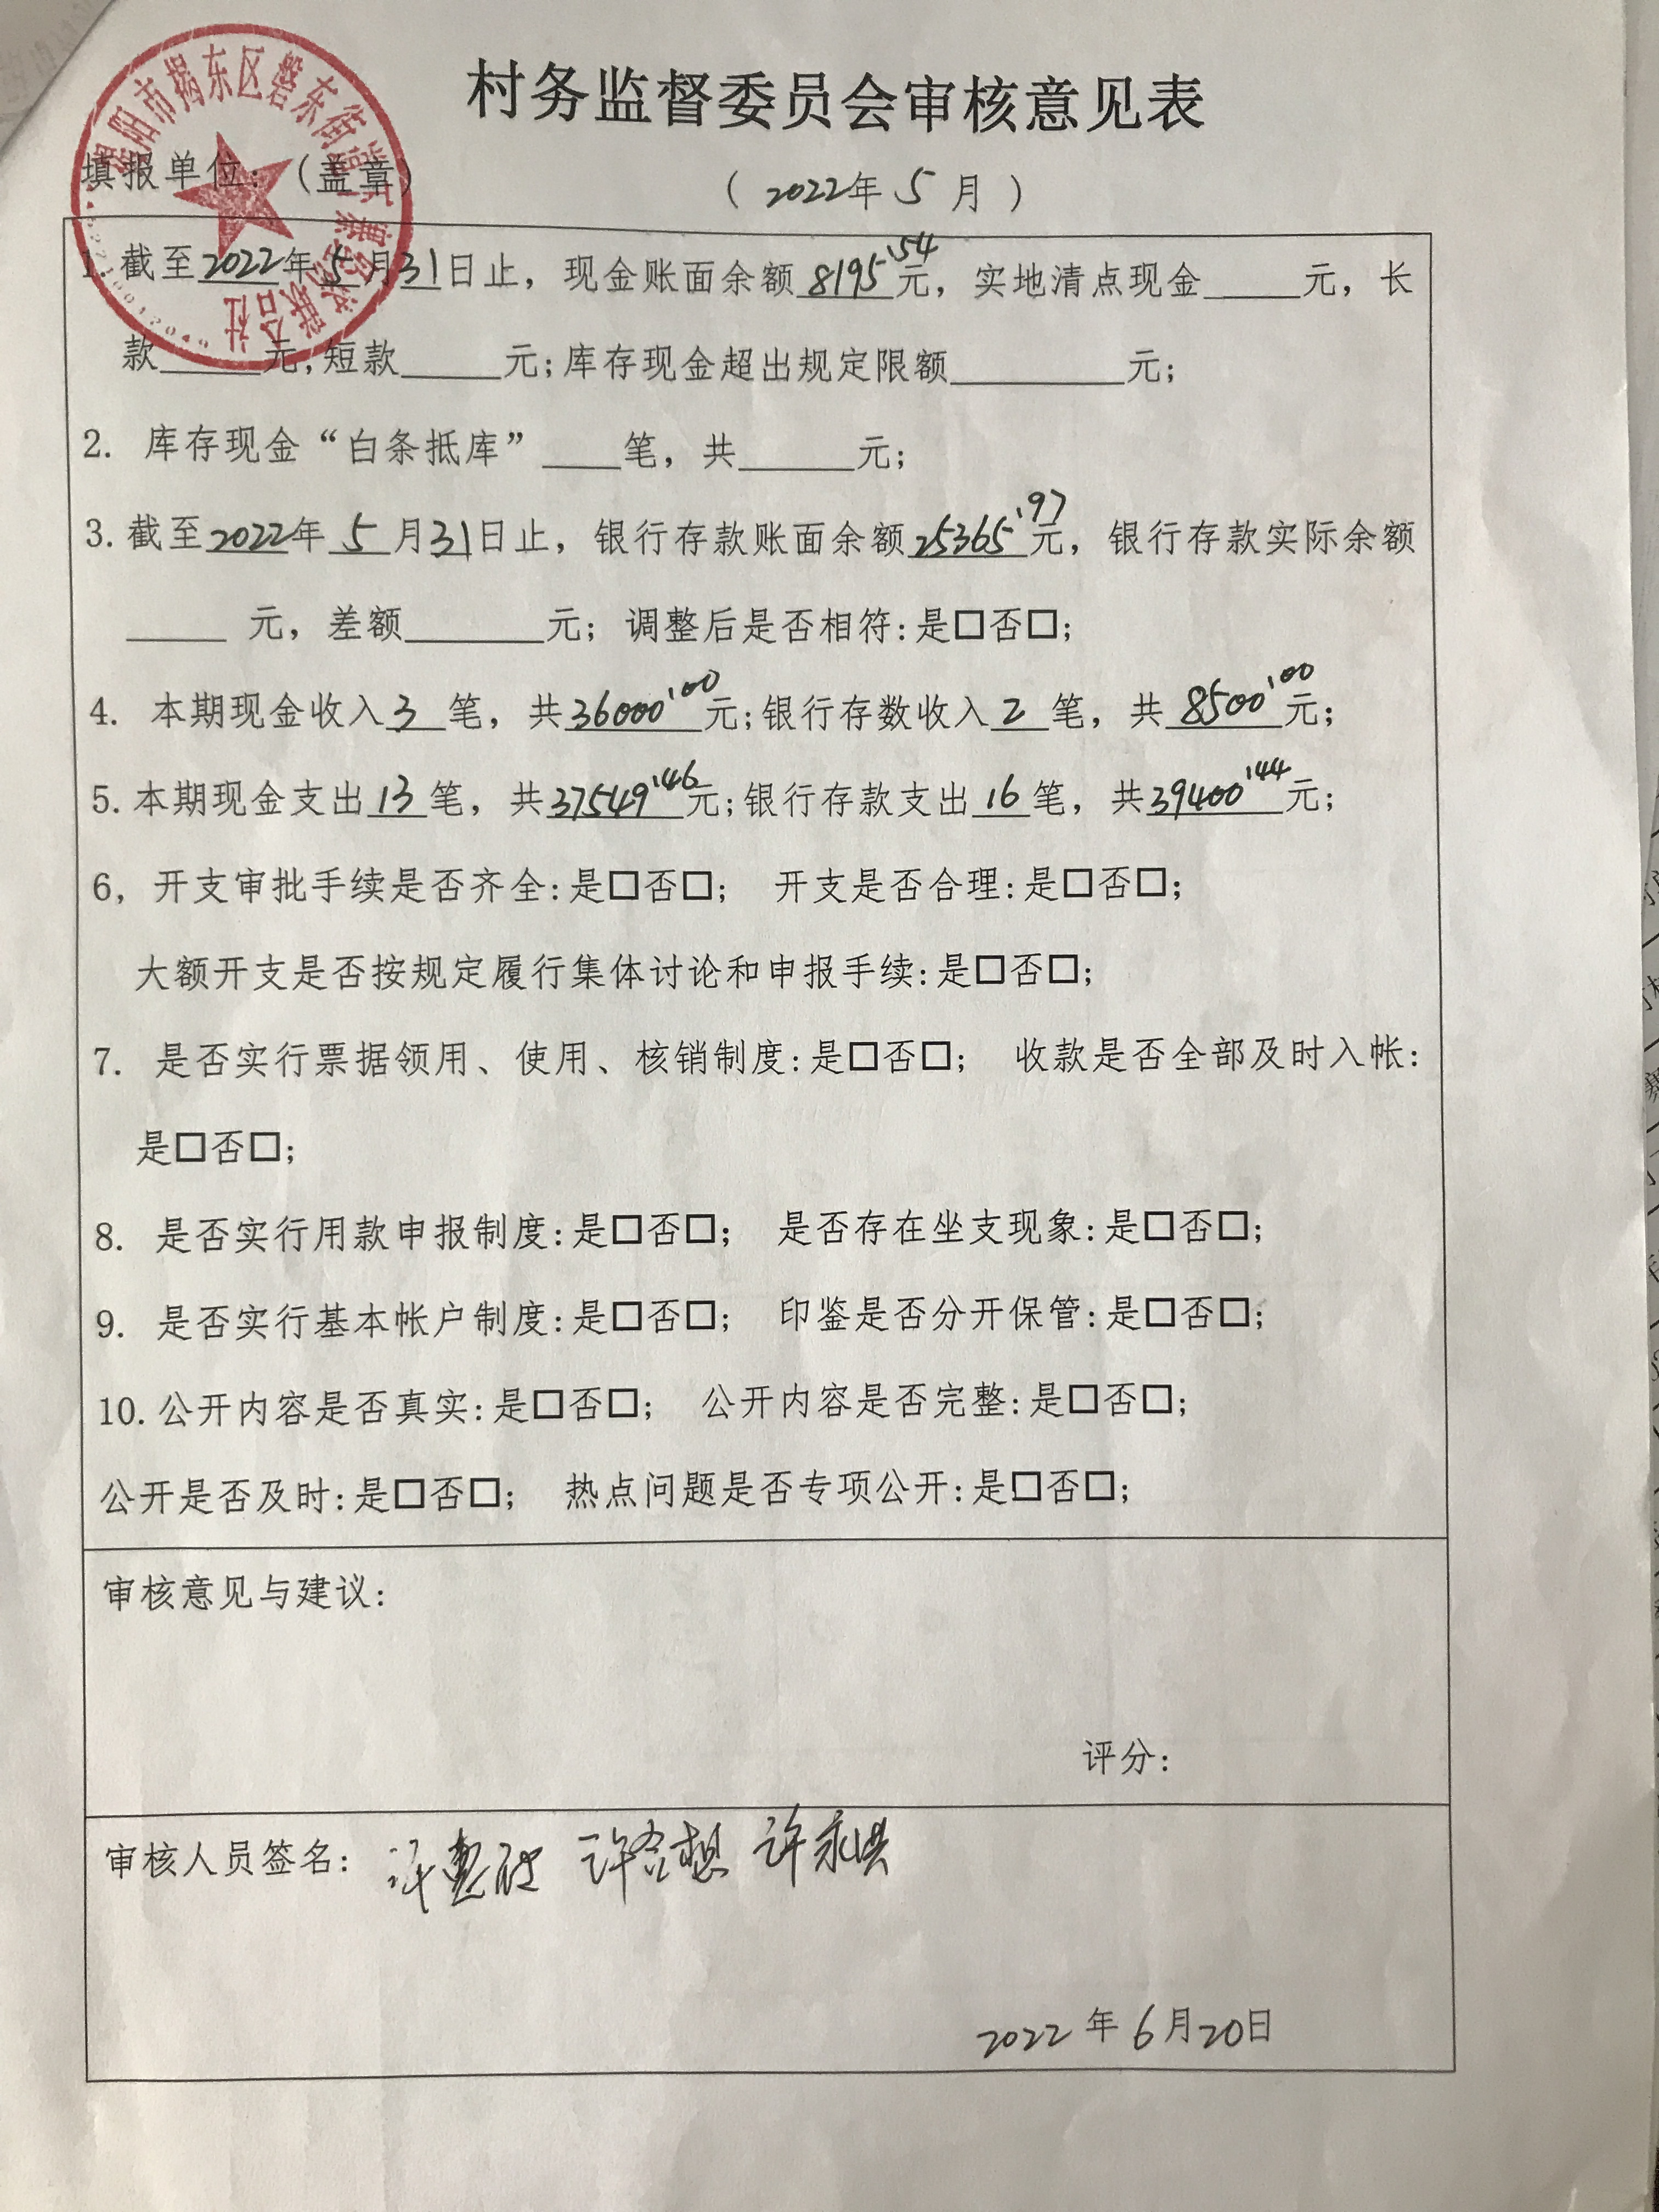 村务监督委员会审核意见表
揭阳市揭东区磐东街道
经济联合社
填报单位：（盖章）
（2022年5月）
1.截至2022年5月31日止，现金账面余额8195.54元，实地清点现金_____元，长
款_____元，短款_____元；库存现金超出规定限额_________元；
2. 库存现金“白条抵库”____笔，共______元；
3.截至2022年5月31日止，银行存款账面余额25365.97元，银行存款实际余额
_____ 元，差额_______元；调整后是否相符：是□否□；
4. 本期现金收入3笔，共36000.00元；银行存数收入2笔，共8500.00元；
5.本期现金支出13笔，共37549.46元；银行存款支出16笔，共39400.44元；
6，开支审批手续是否齐全：是□否□； 开支是否合理：是□否□；
大额开支是否按规定履行集体讨论和申报手续：是□否□；
7. 是否实行票据领用、使用、核销制度：是□否□； 收款是否全部及时入帐：
是□否□；
8. 是否实行用款申报制度：是□否□； 是否存在坐支现象：是□否□；
9. 是否实行基本帐户制度：是□否□； 印鉴是否分开保管：是□否□；
10.公开内容是否真实：是□否□； 公开内容是否完整：是□否□；
公开是否及时：是□否□； 热点问题是否专项公开：是□否□；
审核意见与建议：
评分：
审核人员签名： 许 许合想 许永洪
2022年6月20日